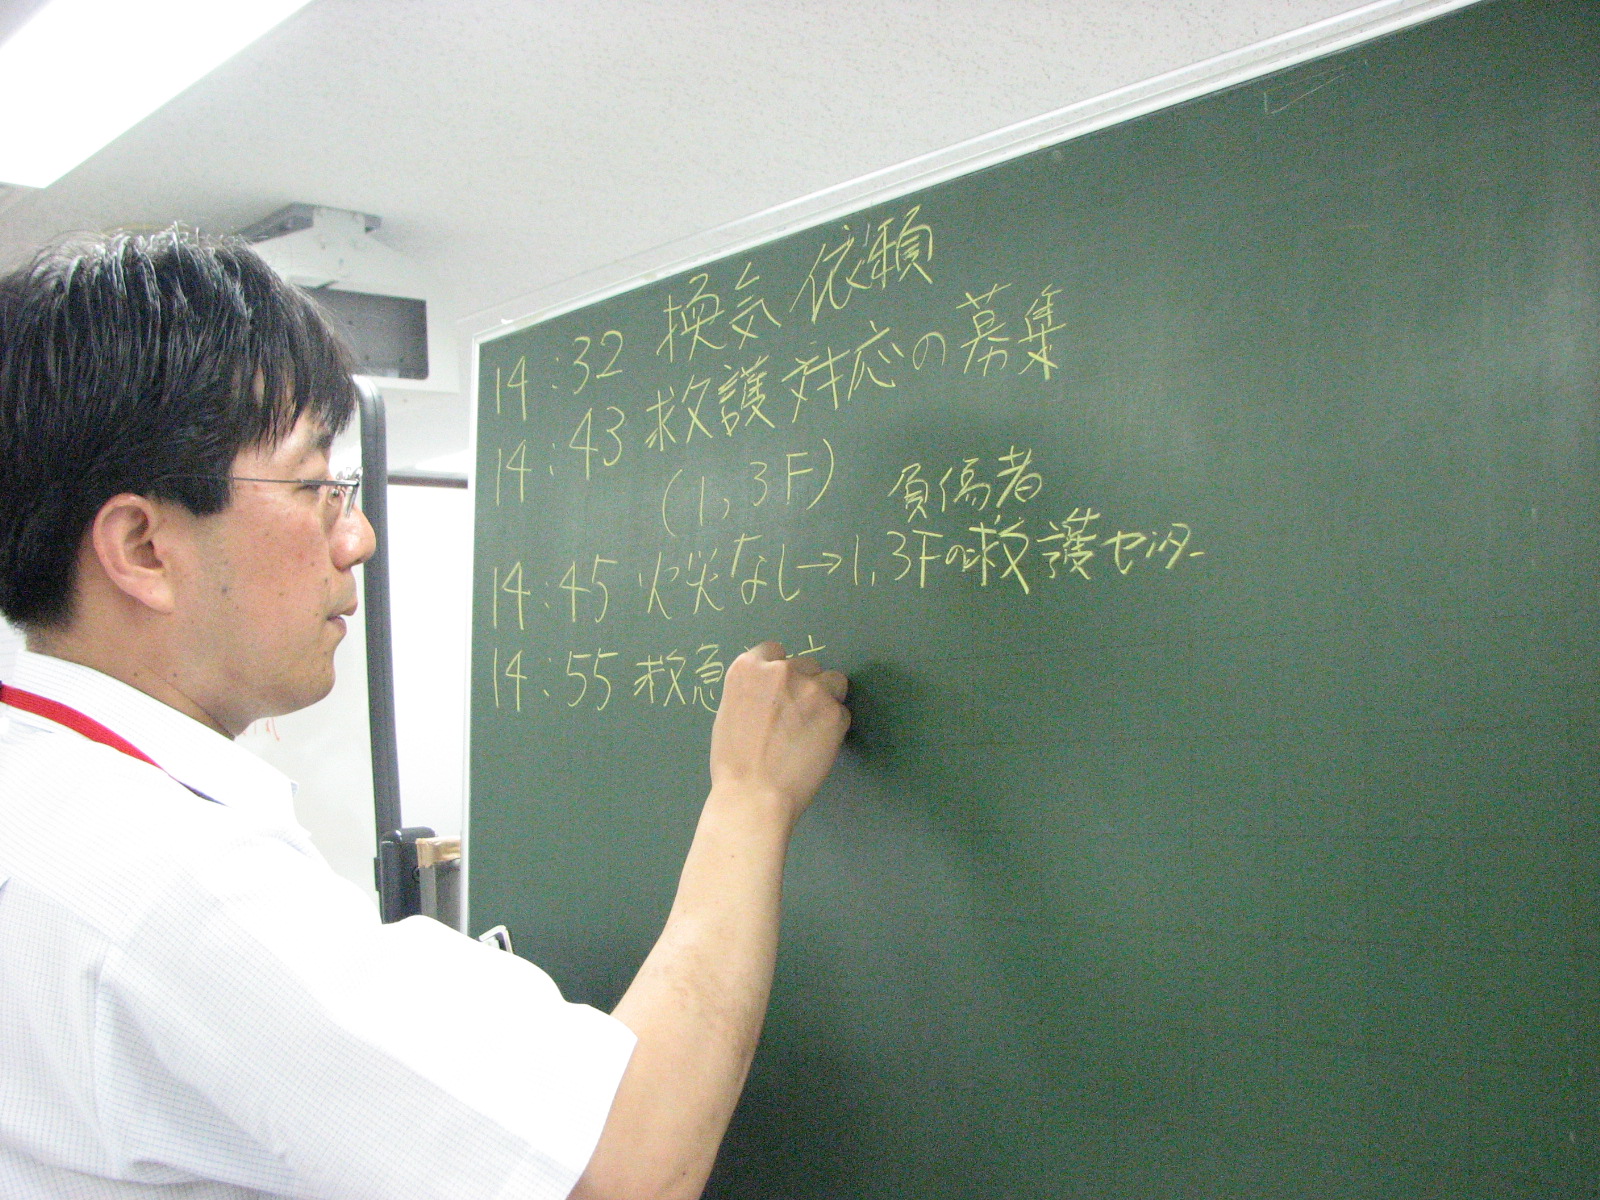 14:32 換気依頼
14:43 救護対応の募集
(1,3F)
負傷者
14:45 火災なし→1,3Fの救護センター
14:55 救急